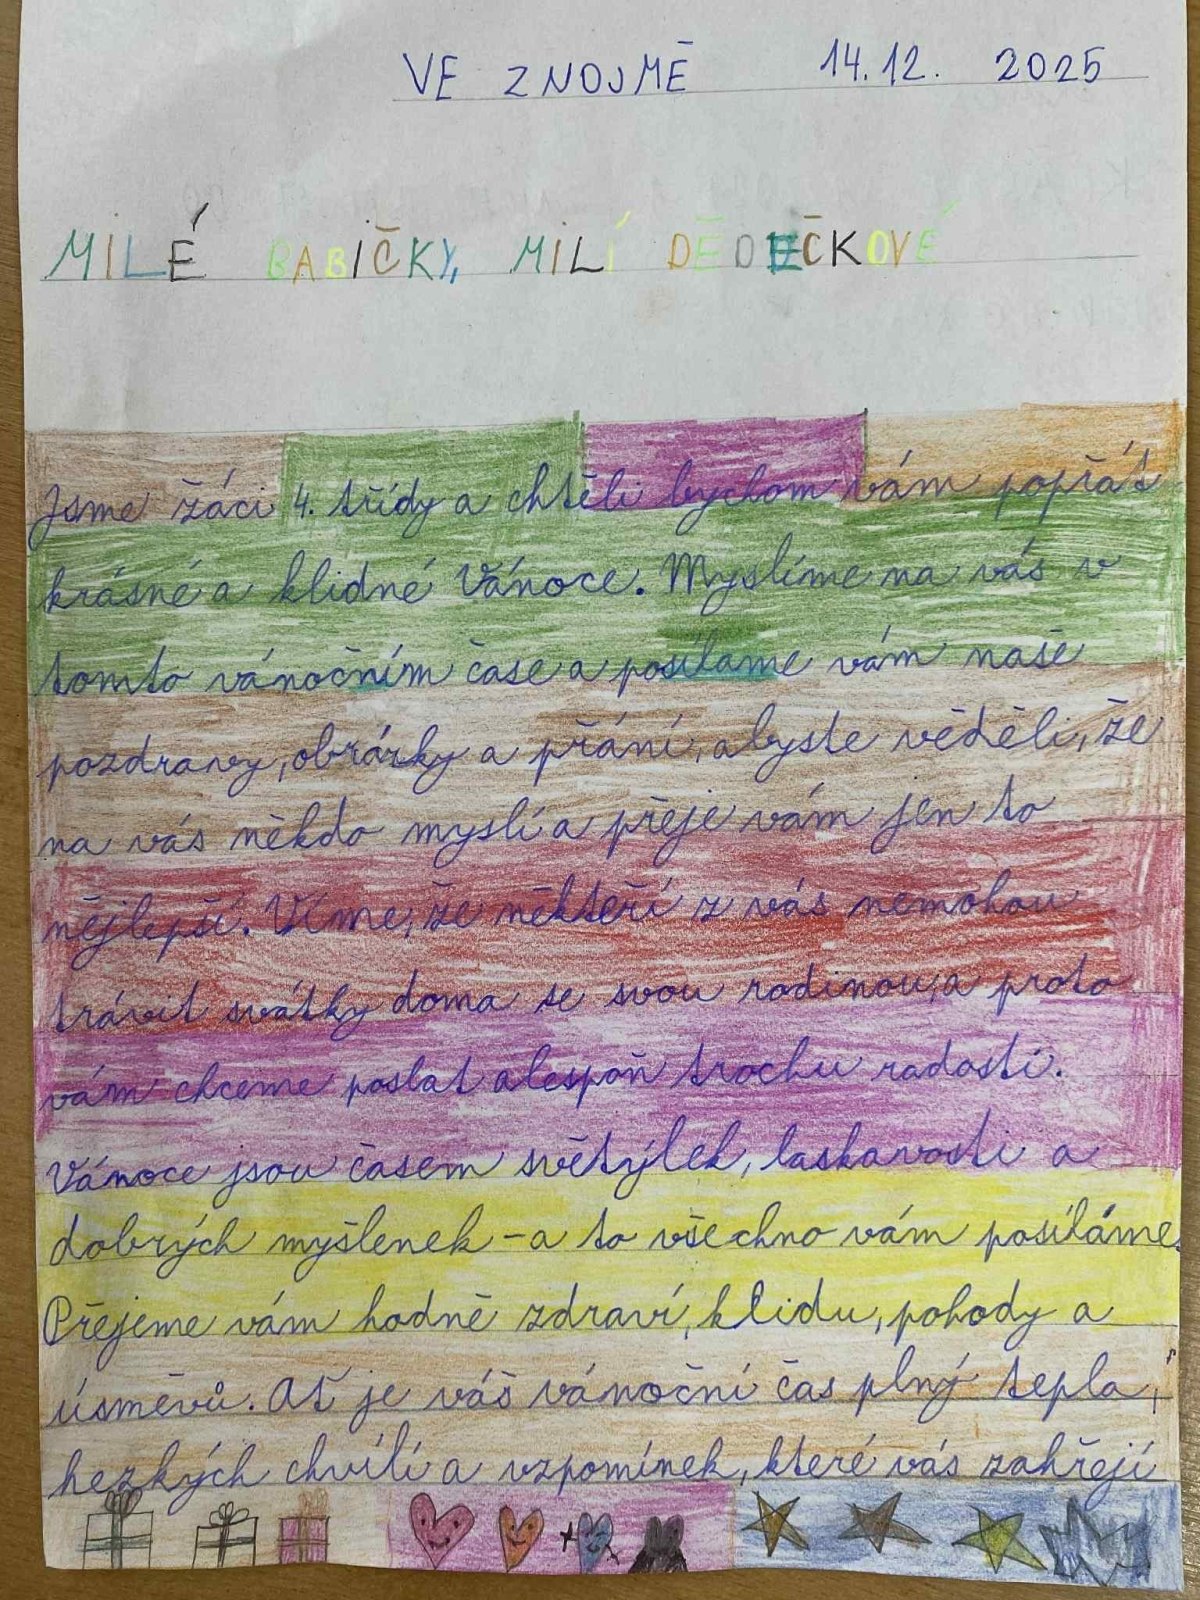 VE ZNOJMĚ 14.12. 2025
MILÉ BABIČKY, MILÍ DĚDEČKOVÉ
Jsme žáci 4. třídy a chtěli bychom vám popřát
krásné a klidné Vánoce. Myslíme na vás v
tomto vánočním čase a posíláme vám naše
pozdravy, obrázky a přání, abyste věděli, že
na vás někdo myslí a přeje vám jen to
nějlepší. Víme, že někteří z vás nemohou
trávit svátky doma se svou rodinou, a proto
vám chceme poslat alespoň trochu radosti.
Vánoce jsou časem světýlek, laskavosti a
dobrých myšlenek - a to všechno vám posíláme.
Přejeme vám hodně zdraví, klidu, pohody a
úsměvů. Ať je váš vánoční čas plný tepla,
hezkých chvílí a vzpomínek, které vás zahřejí